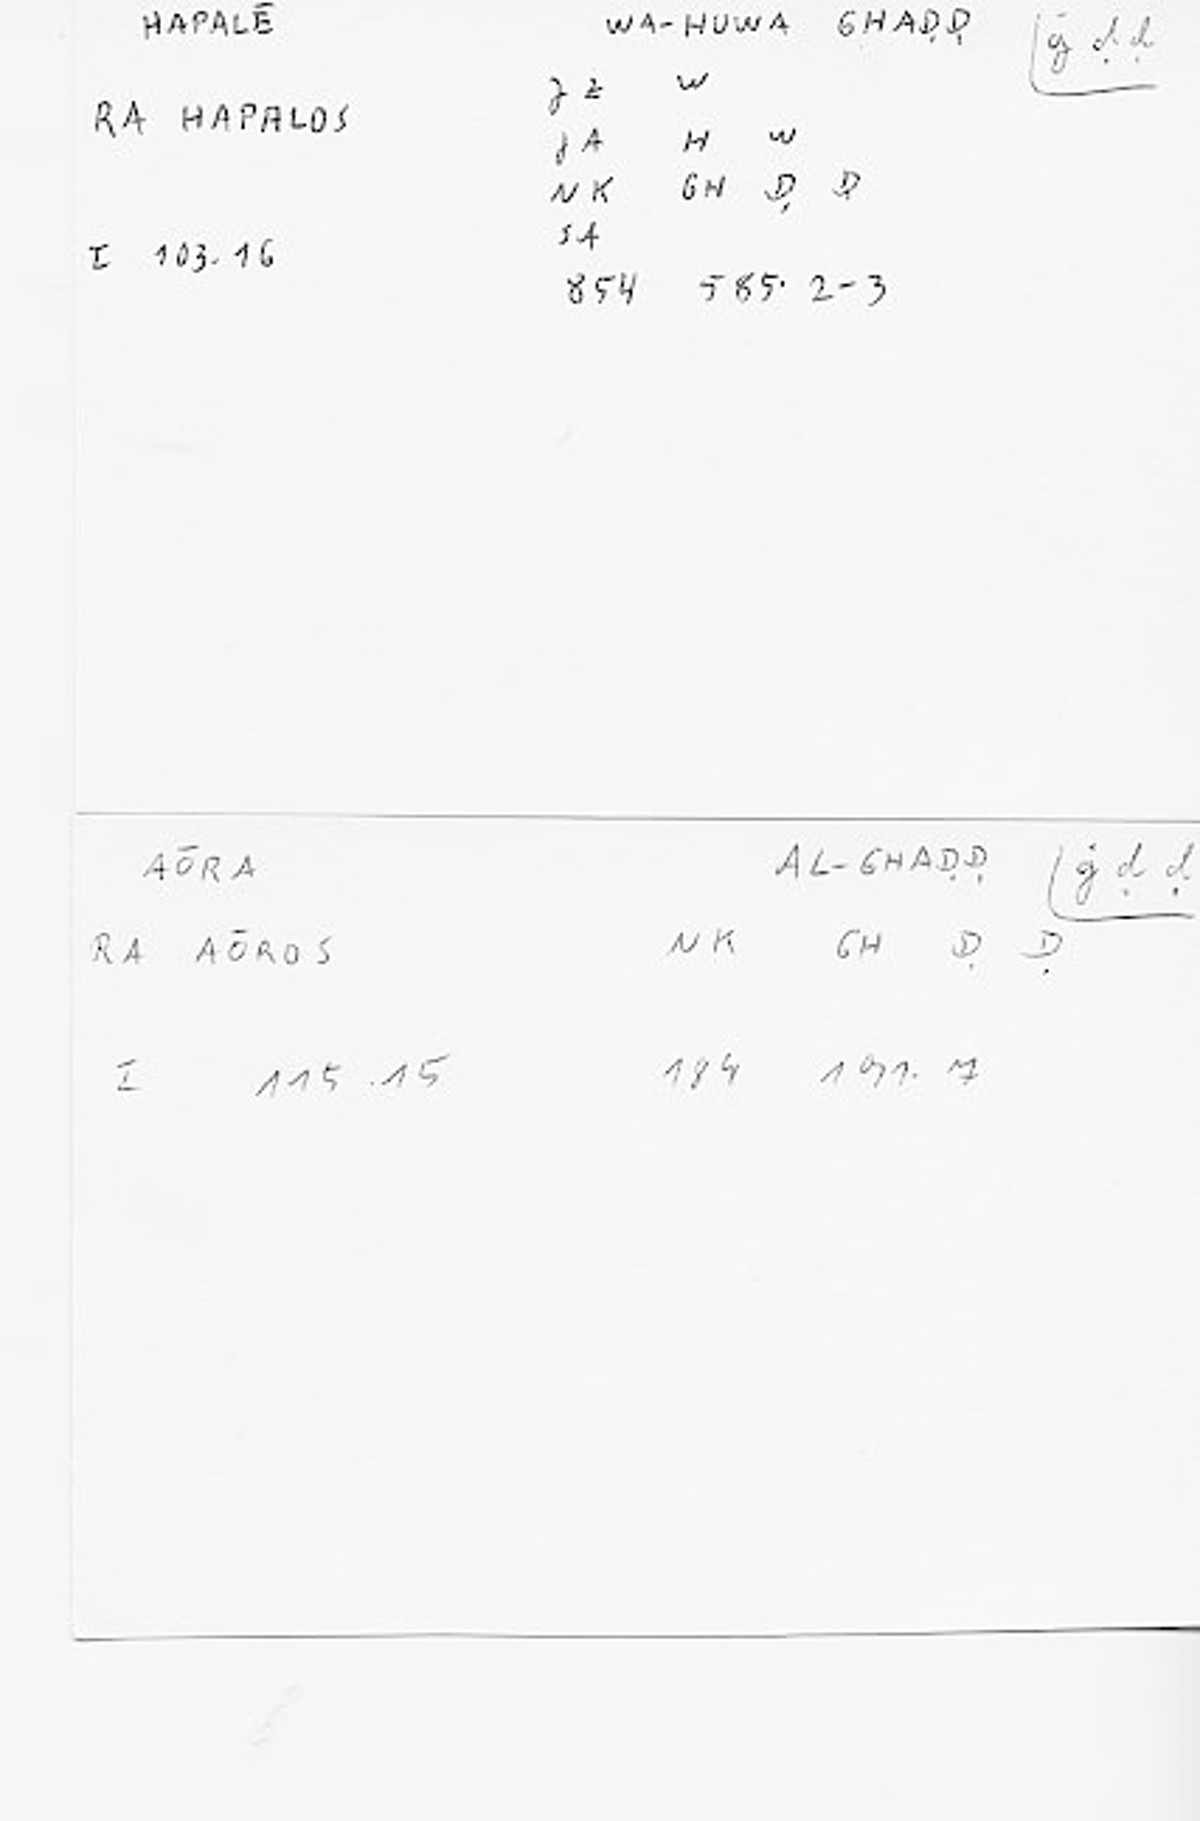 HAPALĒ WA-HUWA GHAḌḌ ġ ḍ ḍ
JZ W
RA HAPALOS
JA H W
NK GH Ḍ Ḍ
SA
I 103.16
854 585.2-3
AŌRA AL-GHAḌḌ ġ ḍ ḍ
RA AŌROS NK GH Ḍ Ḍ
I 115.15 184 191.7